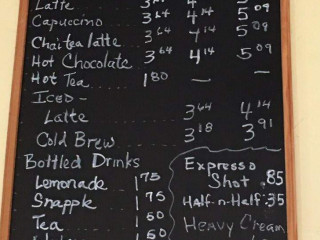 Latte 3 64 4 14 5 09
Capuccino 3 64 4 14 5 09
Chai tea latte 3 64 4 14 5 09
Hot Chocolate 3 64 4 14 5 09
Hot Tea 1 80 — —
Iced -
Latte 3 64 4 14
Cold Brew 3 18 3 91
Bottled Drinks
Lemonade 1 75
Snapple 1 75
Tea 1 50
1 50
Expresso
Shot .85
Half-n-Half .35
Heavy Cream